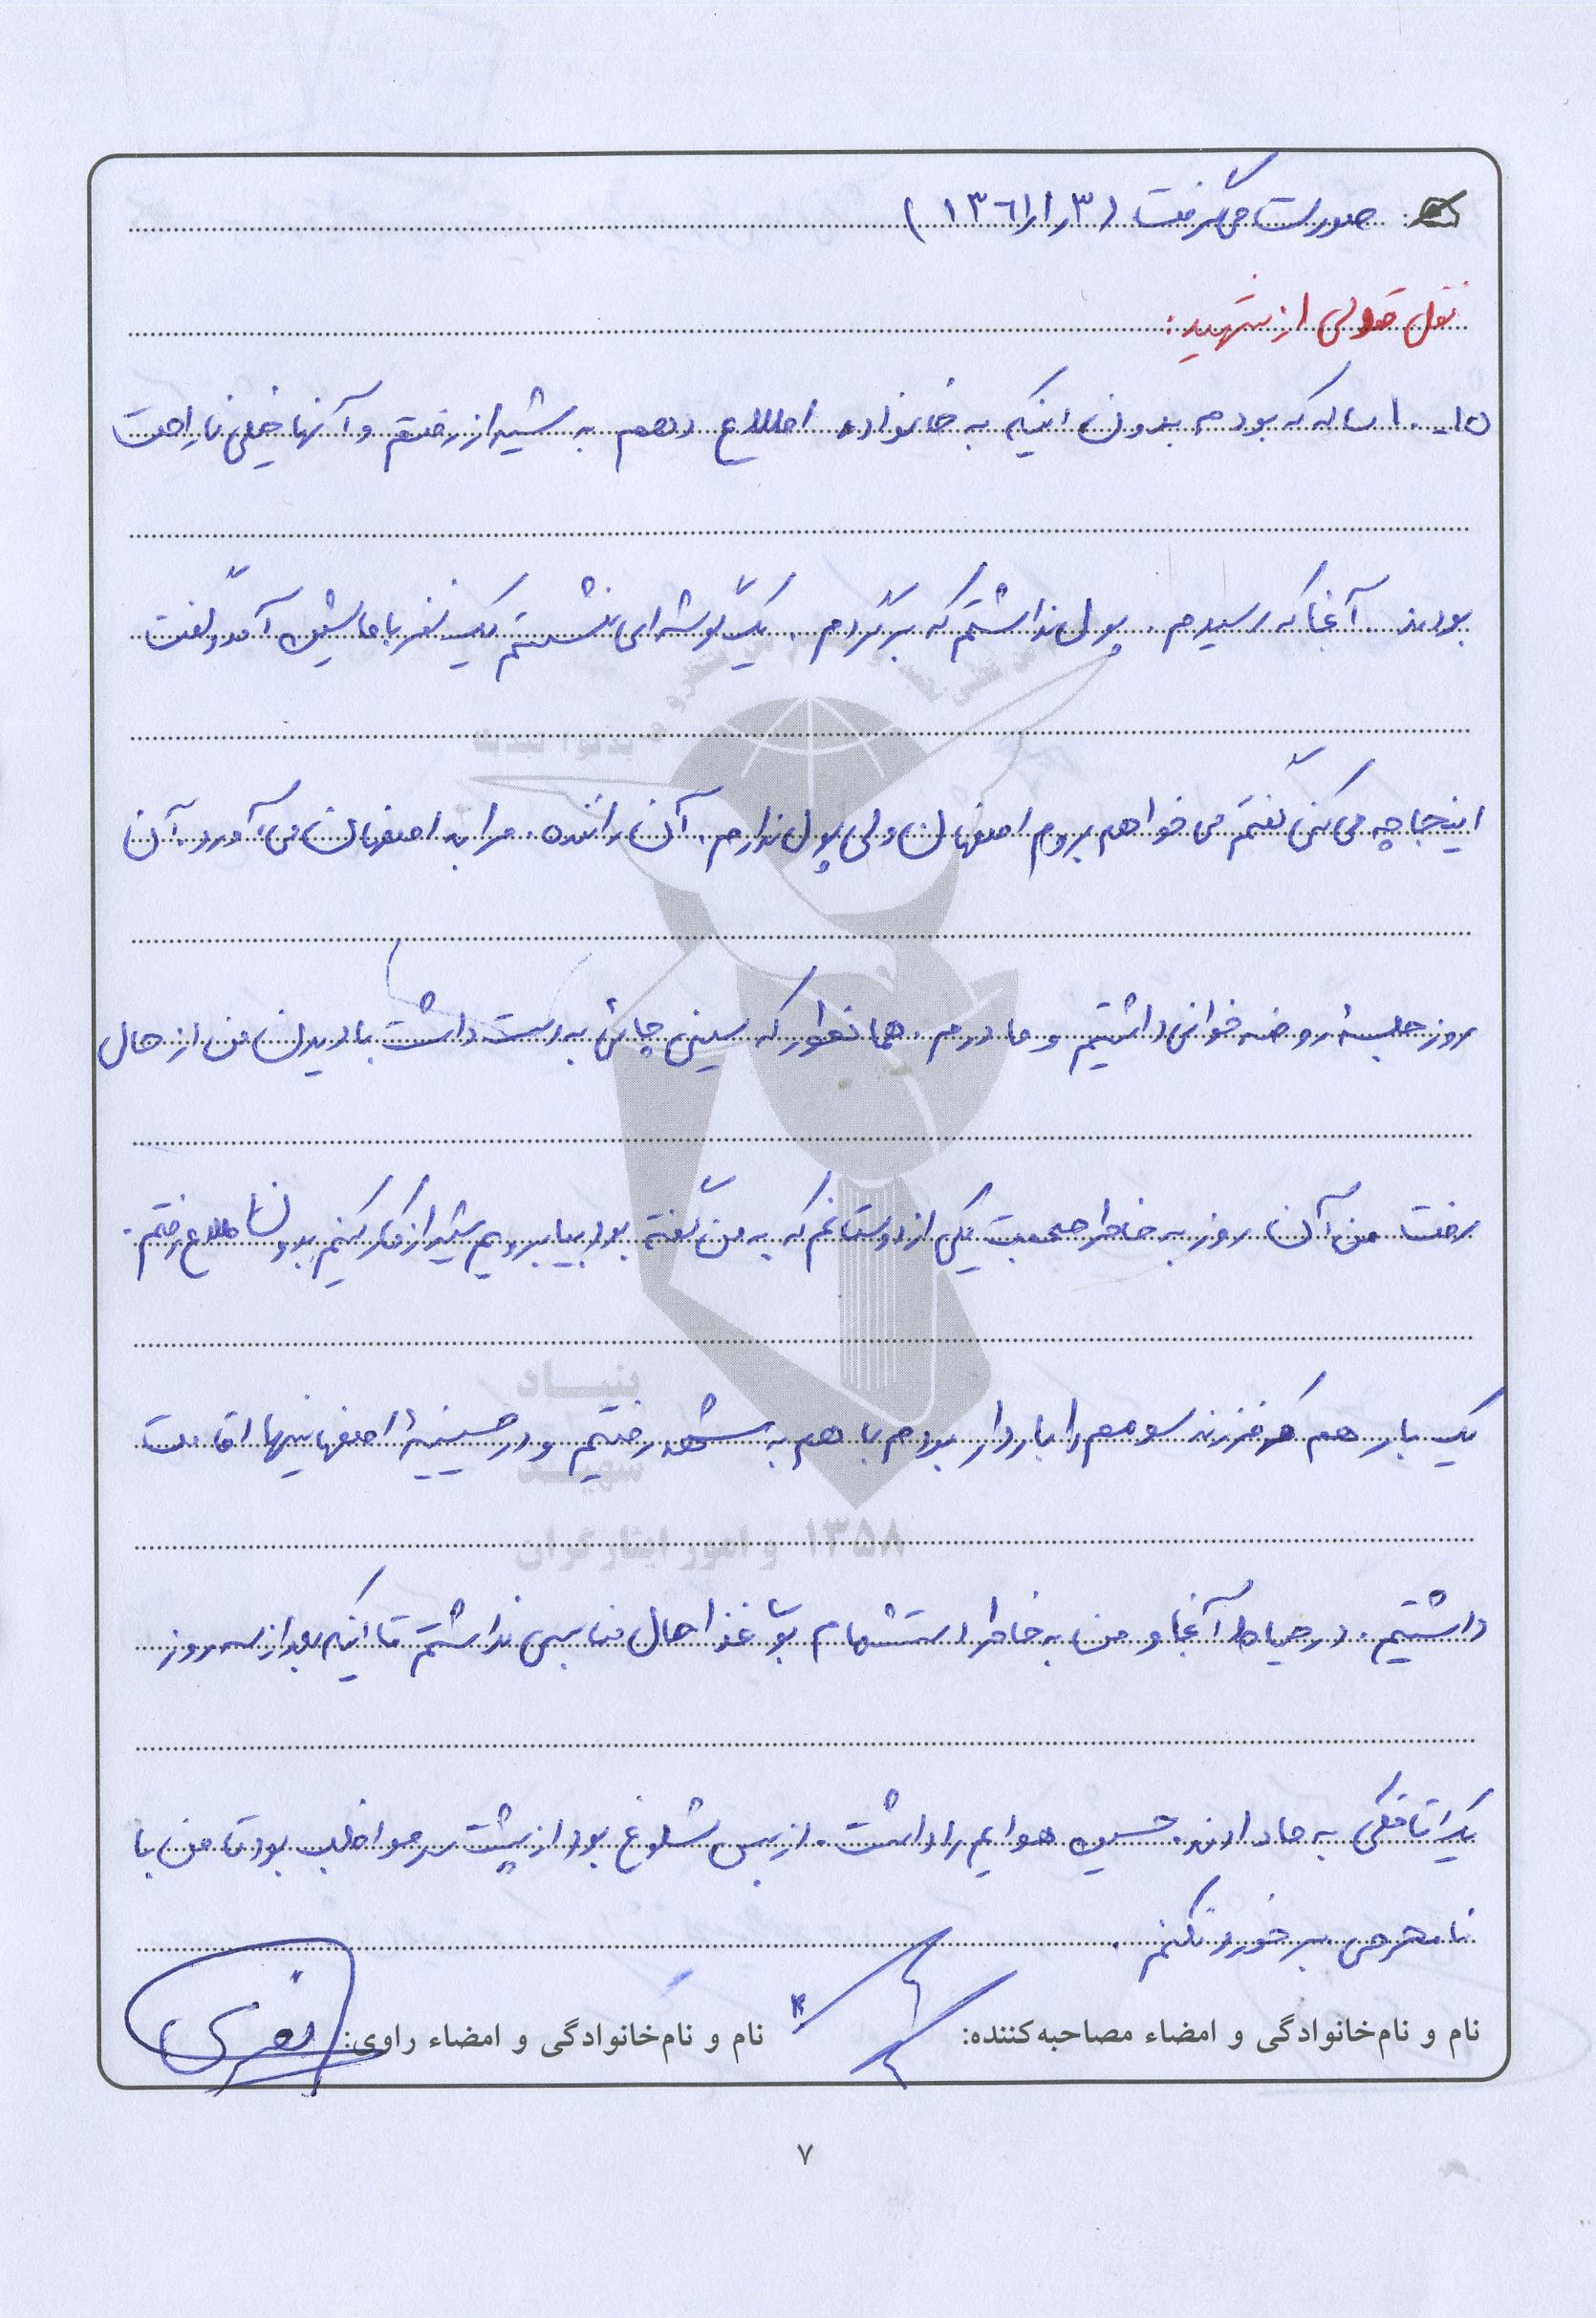 صورت می گرفت (۱۳۶۱/۱/۳)
نقل قولی از شهید:
۱۵-۱۰ ساله که بودم بدون اینکه به خانواده اطلاع دهم به شیراز رفتم و آنها خیلی ناراحت
بودند آنجا که رسیدم. پول نداشتم که برگردم. یک گوشه ای نشستم یک نفر با ماشین آمد و گفت
اینجا چه می کنی گفتم می خواهم بروم اصفهان ولی پول ندارم. آن راننده. مرا به اصفهان می آورد. آن
روز جلسۀ روضه خوانی داشتیم و مادرم. همانطور که سینی چائی به دست داشت با دیدن من از حال
رفت من آن روز به خاطر صحبت یکی از دوستانم که به من گفته بود بیا برویم شیراز کار کنیم بدون اطلاع رفتم.
یک بار هم که فرزند سومم را باردار بودم با هم به مشهد رفتیم و در حسینیۀ اصفهانیها اقامت
داشتیم. در حیاط آنجا و من به خاطر استشمام بوی غذا حال مناسبی نداشتم تا اینکه بعد از سه روز
یک اتاقکی به ما دادند. حسین هوایم را داشت. از بس شلوغ بود از پشت سر مواظب بود تا من با
نامحرمی برخورد نکنم.
نام و نام‌خانوادگی و امضاء مصاحبه‌کننده: نام و نام‌خانوادگی و امضاء راوی:
۷
بنیاد
شهید
و امور ایثارگران ۱۳۵۸